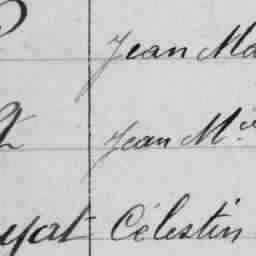 Jean Ma
Jean M.ie
yat Célestin